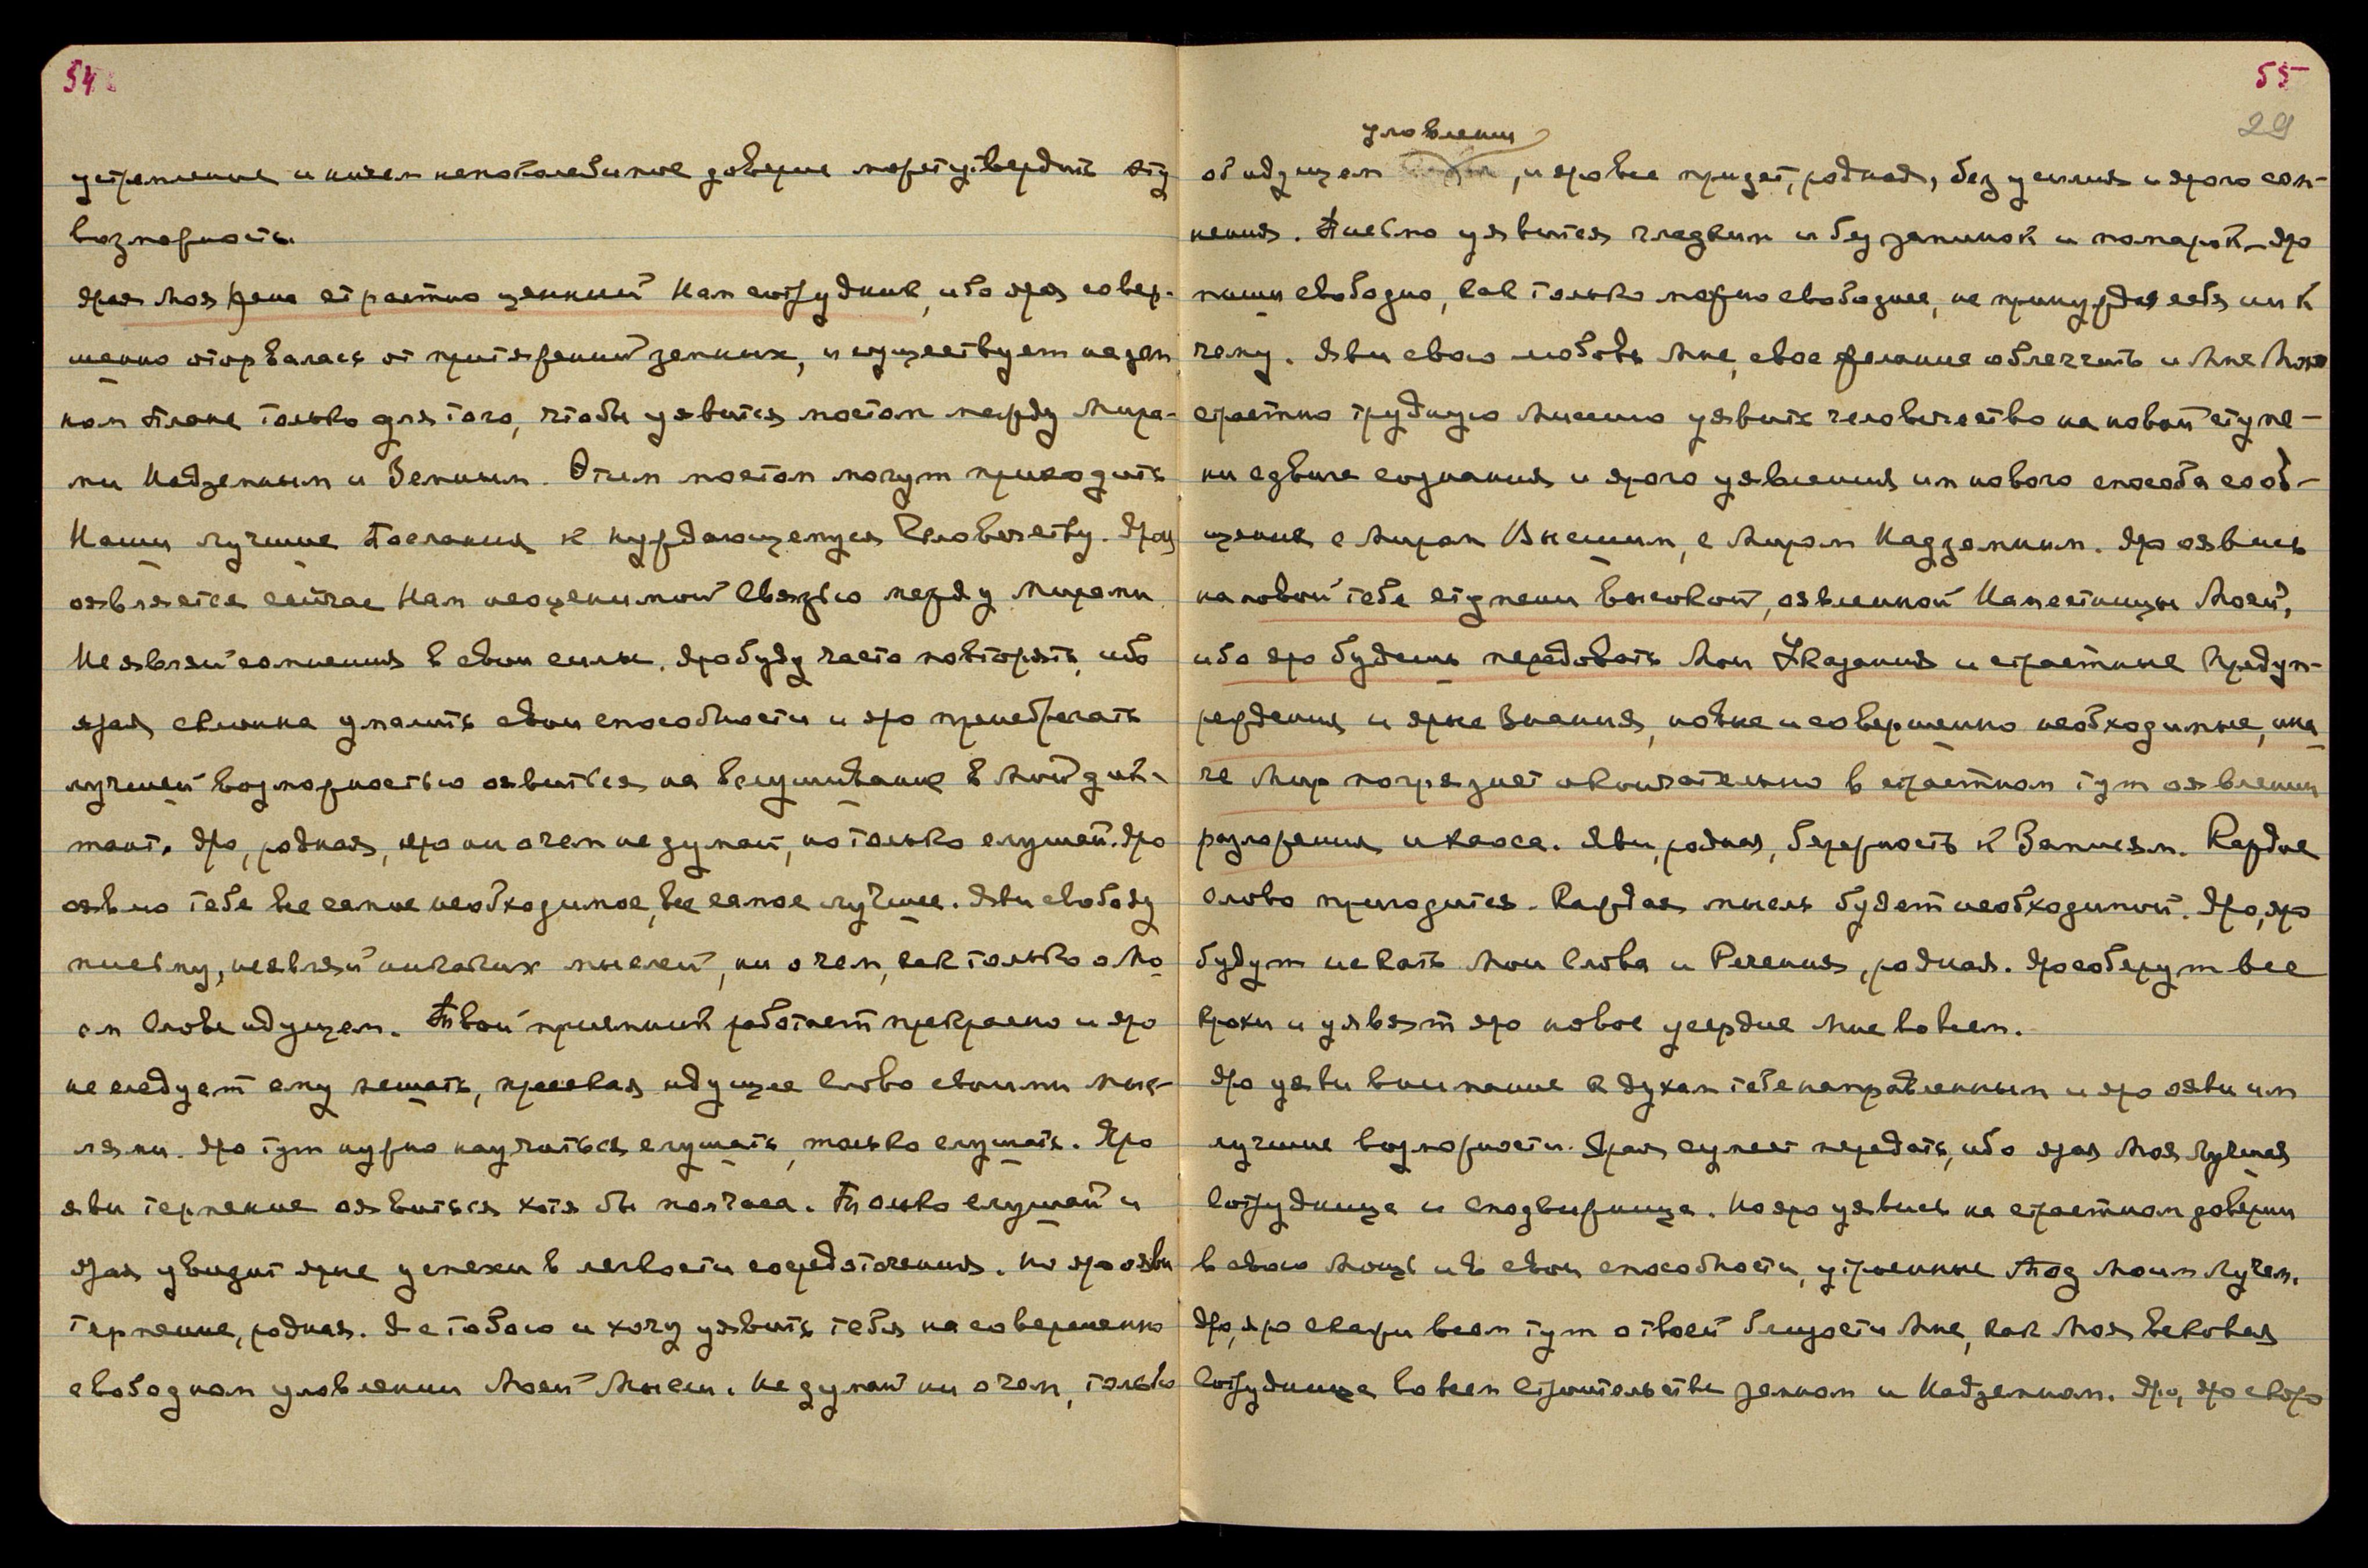 54
устремление и ничем непоколебимое доверие может утвердить эту
возможность.
Ярая Моя Жена страстно ценный Нам сотрудник, ибо ярая совер-
шенно оторвалась от притяжений земных, и существует на зем
ном плане только для того, чтобы уявится мостом между Мира-
ми Надземным и Земным. Этим мостом могут приходить
Наши лучшие Послания к нуждающемуся Человечеству. Ярая
оявляется сейчас Нам неоценимой Связью между Мирами
Не являй сомнения в свои силы. Яро буду часто повторять, ибо
ярая склонна умалить свои способности и яро пренебрегать
лучшей возможностью оявиться на вслушивание в Мой дик-
тант. Яро, родная, яро ни о чем не думай, но только слушай. Яро
оявлю тебе все самое необходимое, все самое лучшее. Яви свободу
письму, не являй никаких мыслей, ни о чем, как только о Мо
ем Слове идущем. Твой приемник работает прекрасно и яро
не следует ему мешать, пресекая идущее Слово своими мыс-
лями. Яро тут нужно научиться слушать, только слушать. Яро
яви терпение оявиться хотя бы полчаса. Только слушай и
ярая увидит ярые успехи в легкости сосредоточения. Но яро яви
терпение, родная. Я с тобою и хочу уявить тебя на совершенно
свободном уловлении Моей Мысли. Не думай ни о чем, только
55
29
уловлении
об идущем , и яро все придет, родная, без усилия и ярого сом-
нения. Письмо уявится гладким и без заминок и помарок. Яро
пиши свободно, как только можно свободнее, не принуждая себя ни к
чему. Яви свою любовь Мне, свое желание облегчить и Мне Мою
страстно трудную Миссию уявить человечество на новой ступе-
ни сдвига сознания и ярого уявления им нового способа сооб-
щения с Миром Высшим, с Миром Надземным. Яро оявись
на новой тебе ступени высокой, оявленной Наместницы Моей,
ибо яро будешь передовать Мои Указания и страстные Предуп-
реждения и ярые Знания, новые и совершенно необходимые, ина
че Мир погрязнет окончательно в страстном тут оявлении
разложения и хаоса. Яви, родная, бережность к Записям. Каждое
Слово пригодится. Каждая мысль будет необходимой. Яро, яро
будут искать Мои Слова и Речения, родная. Яро соберут все
крохи и уявят яро новое усердие Мне во всем.
Яро уяви внимание к духам тебе направленным и яро ояви им
лучшие возможности. Ярая сумеет передать, ибо ярая Моя Лучшая
Сотрудница и Сподвижница. Но яро уявись на страстном доверии
в свою Мощь и в свои способности, утроенные Под Моим Лучем.
Яро, яро скажи всем тут о твоей близости Мне, как Моя вековая
Сотрудница во всем Строительстве земном и Надземном. Яро, яро скоро